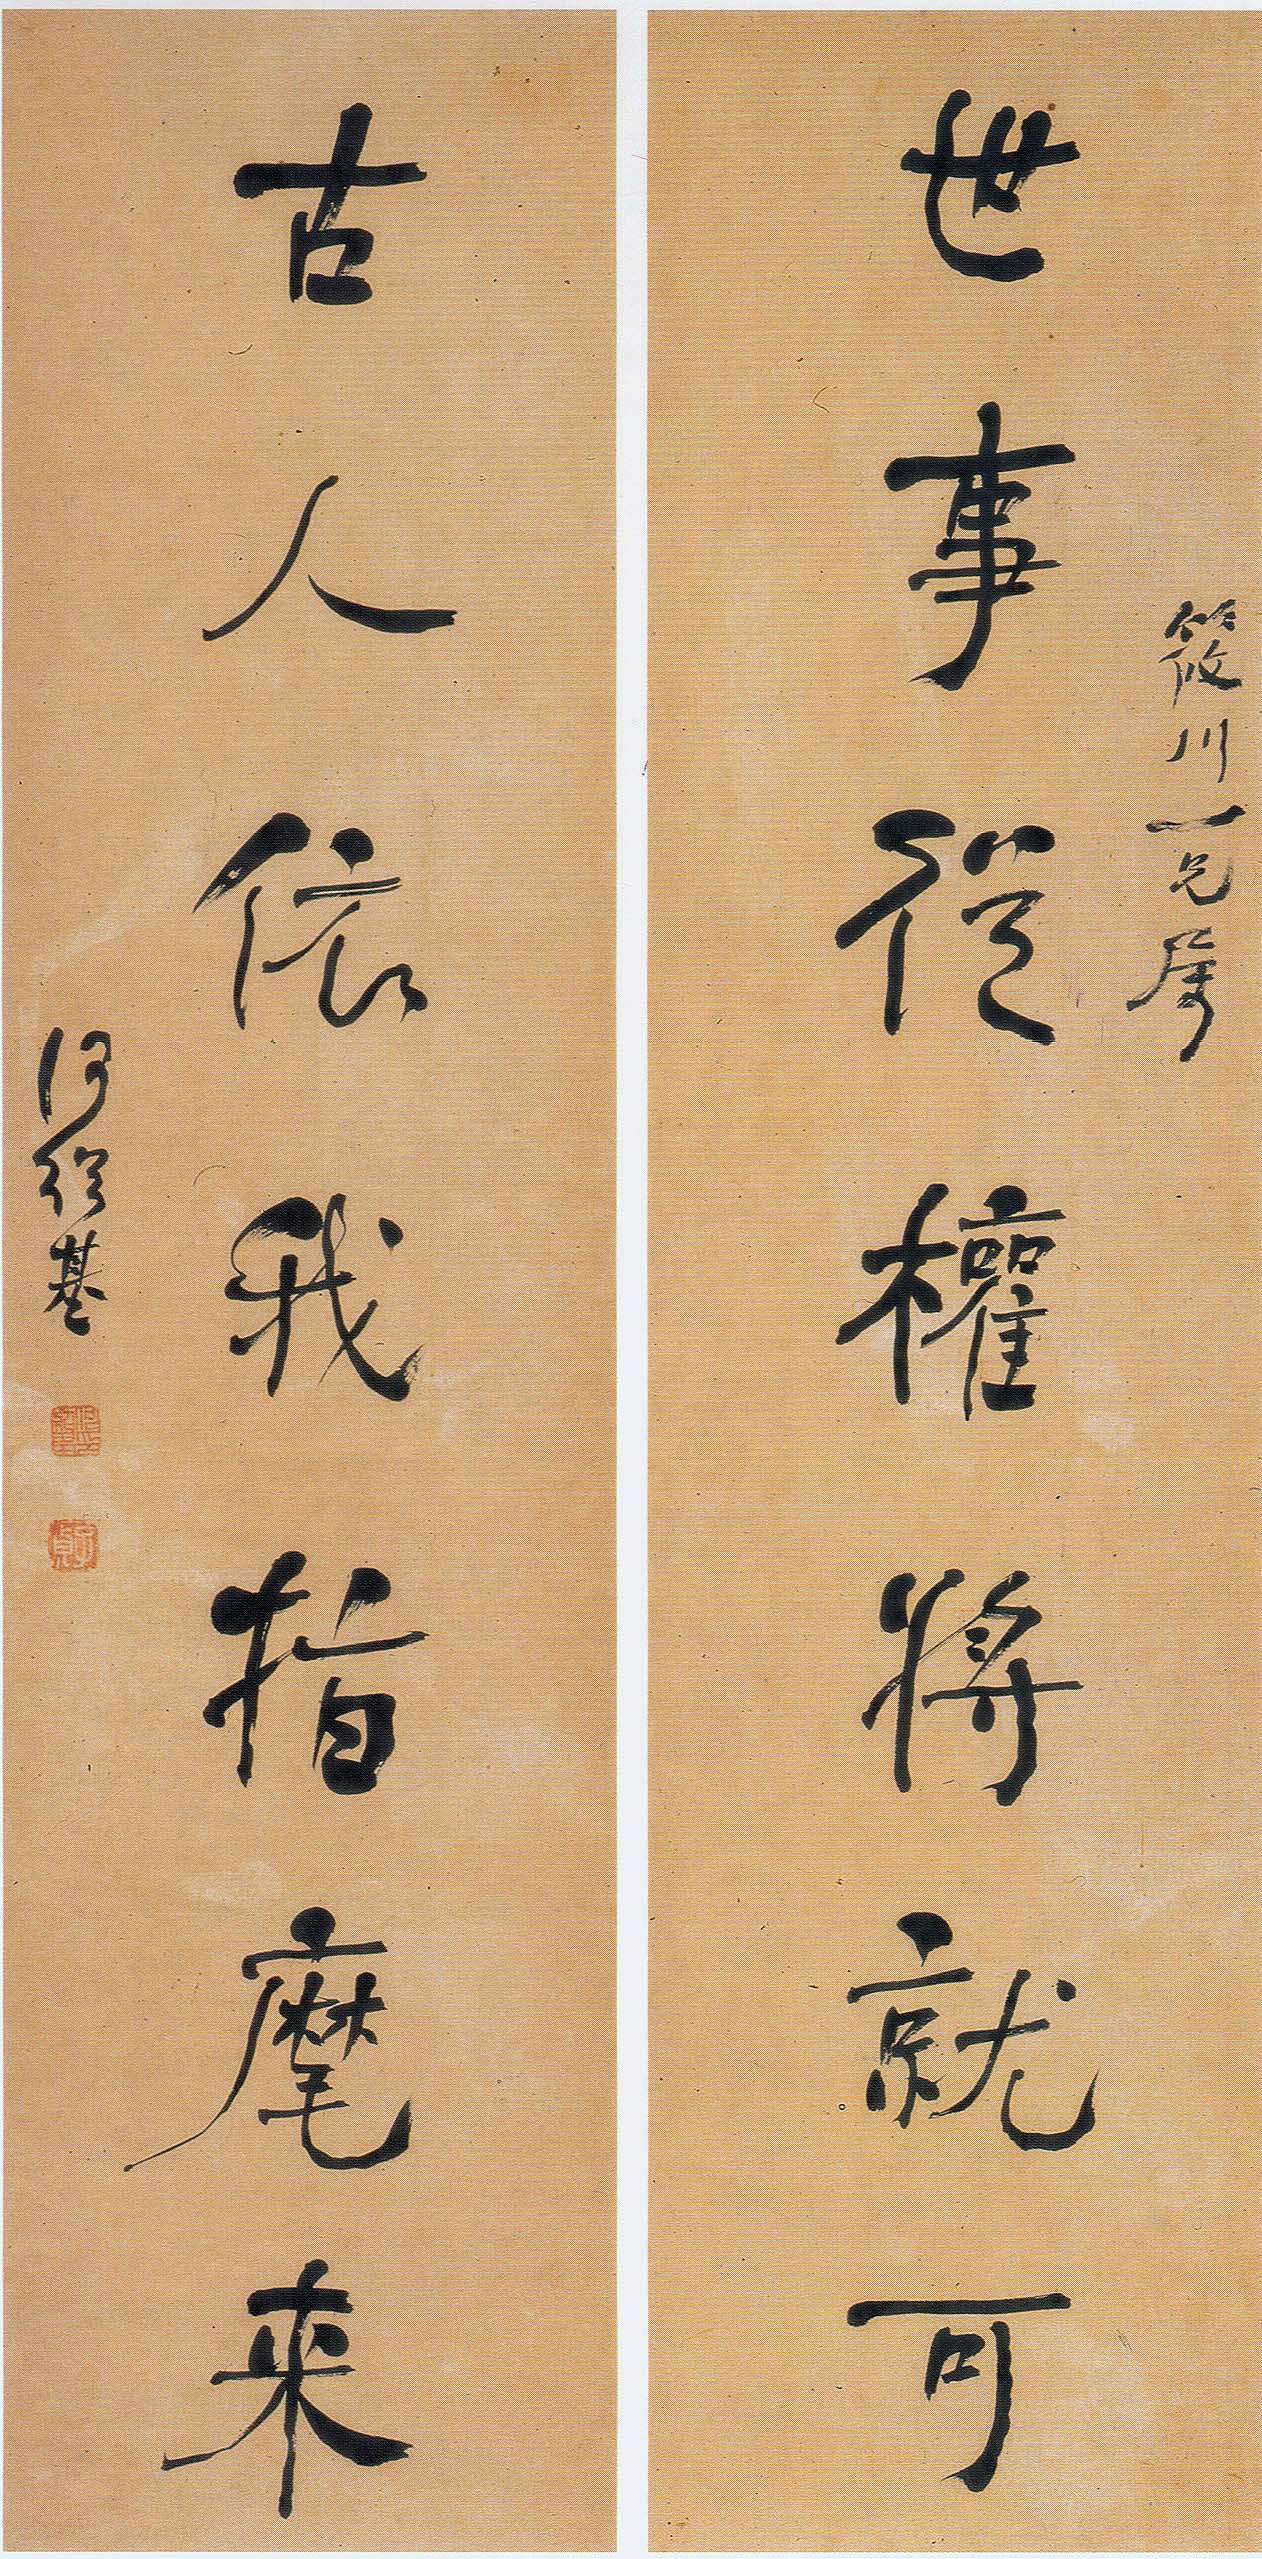 筱川一兄属
世事從權將就可
古人依我指麾来
何紹基